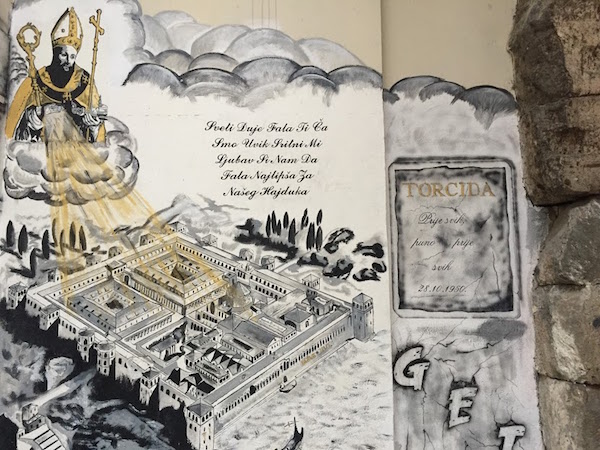 Sveti Duje Fala Ti Ča
Smo Uvik Sritni Mi
Ljubav Si Nam Da
Fala Najlipša Za
Našeg Hajduka
TORCIDA
Prije svih,
puno prije
svih
28.10.1950.
GET